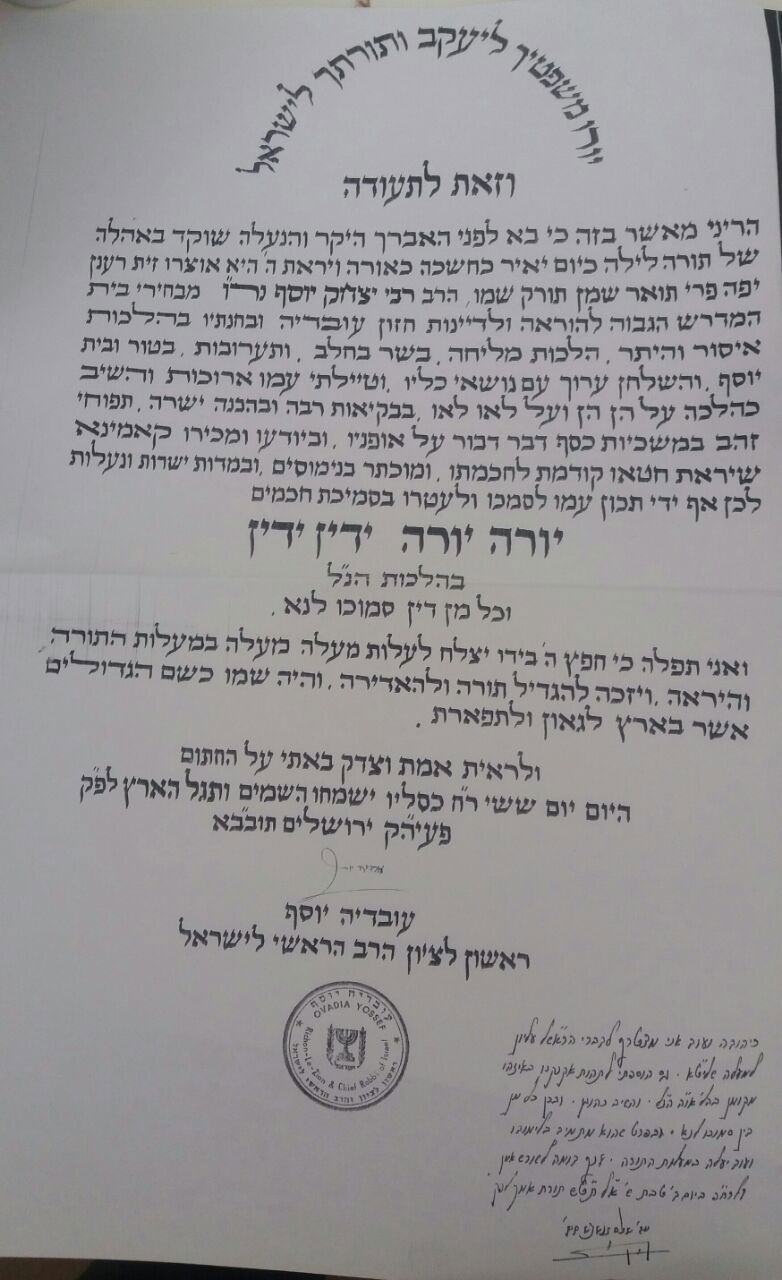 יורו משפטיך ליעקב ותורתך לישראל
וזאת לתעודה
הריני מאשר בזה כי בא לפני האברך היקר והנעלה שוקד באהלה
של תורה לילה כיום יאיר כחשכה כאורה ויראת ה' היא אוצרו זית רענן
יפה פרי תואר שמן תורק שמו, הרב רבי יצחק יוסף נר"ו מבחירי בית
המדרש הגבוה להוראה ולדיינות חזון עובדיה ובחנתיו בהלכות
איסור והיתר, הלכות מליחה, בשר בחלב, ותערובות, בטור ובית
יוסף, והשלחן ערוך עם נושאי כליו, וטיילתי עמו ארוכות והשיב
כהלכה על הן הן ועל לאו לאו, בבקיאות רבה ובהבנה ישרה, תפוחי
זהב במשכיות כסף דבר דבור על אופניו, וביודעו ומכירו קאמינא
שיראת חטאו קודמת לחכמתו, ומוכתר בנימוסים, ובמדות ישרות ונעלות
לכן אף ידי תכון עמו לסמכו ולעטרו בסמיכת חכמים
יורה יורה ידין ידין
בהלכות הנ"ל
וכל מן דין סמוכו לנא.
ואני תפלה כי חפץ ה' בידו יצלח לעלות מעלה מעלה במעלות התורה
והיראה, ויזכה להגדיל תורה ולהאדירה, והיה שמו כשם הגדולים
אשר בארץ לגאון ולתפארת.
ולראית אמת וצדק באתי על החתום
היום יום ששי ר"ח כסליו ישמחו השמים ותגל הארץ לפ"ק
פעיה"ק ירושלים תובב"א
עובדיה יוסף
ראשון לציון הרב הראשי לישראל
עובדיה יוסף
OVADIA YOSSEF
Rishon-Le-Zion & Chief Rabbi of Israel
ראשון לציון והרב הראשי לישראל
ישראל
אני מצטרף לדברי
למעלה שליט"א
מקומן והשיב כהוגן
מן דין סמוכו לנא
ועוד יעלה במעלות התורה